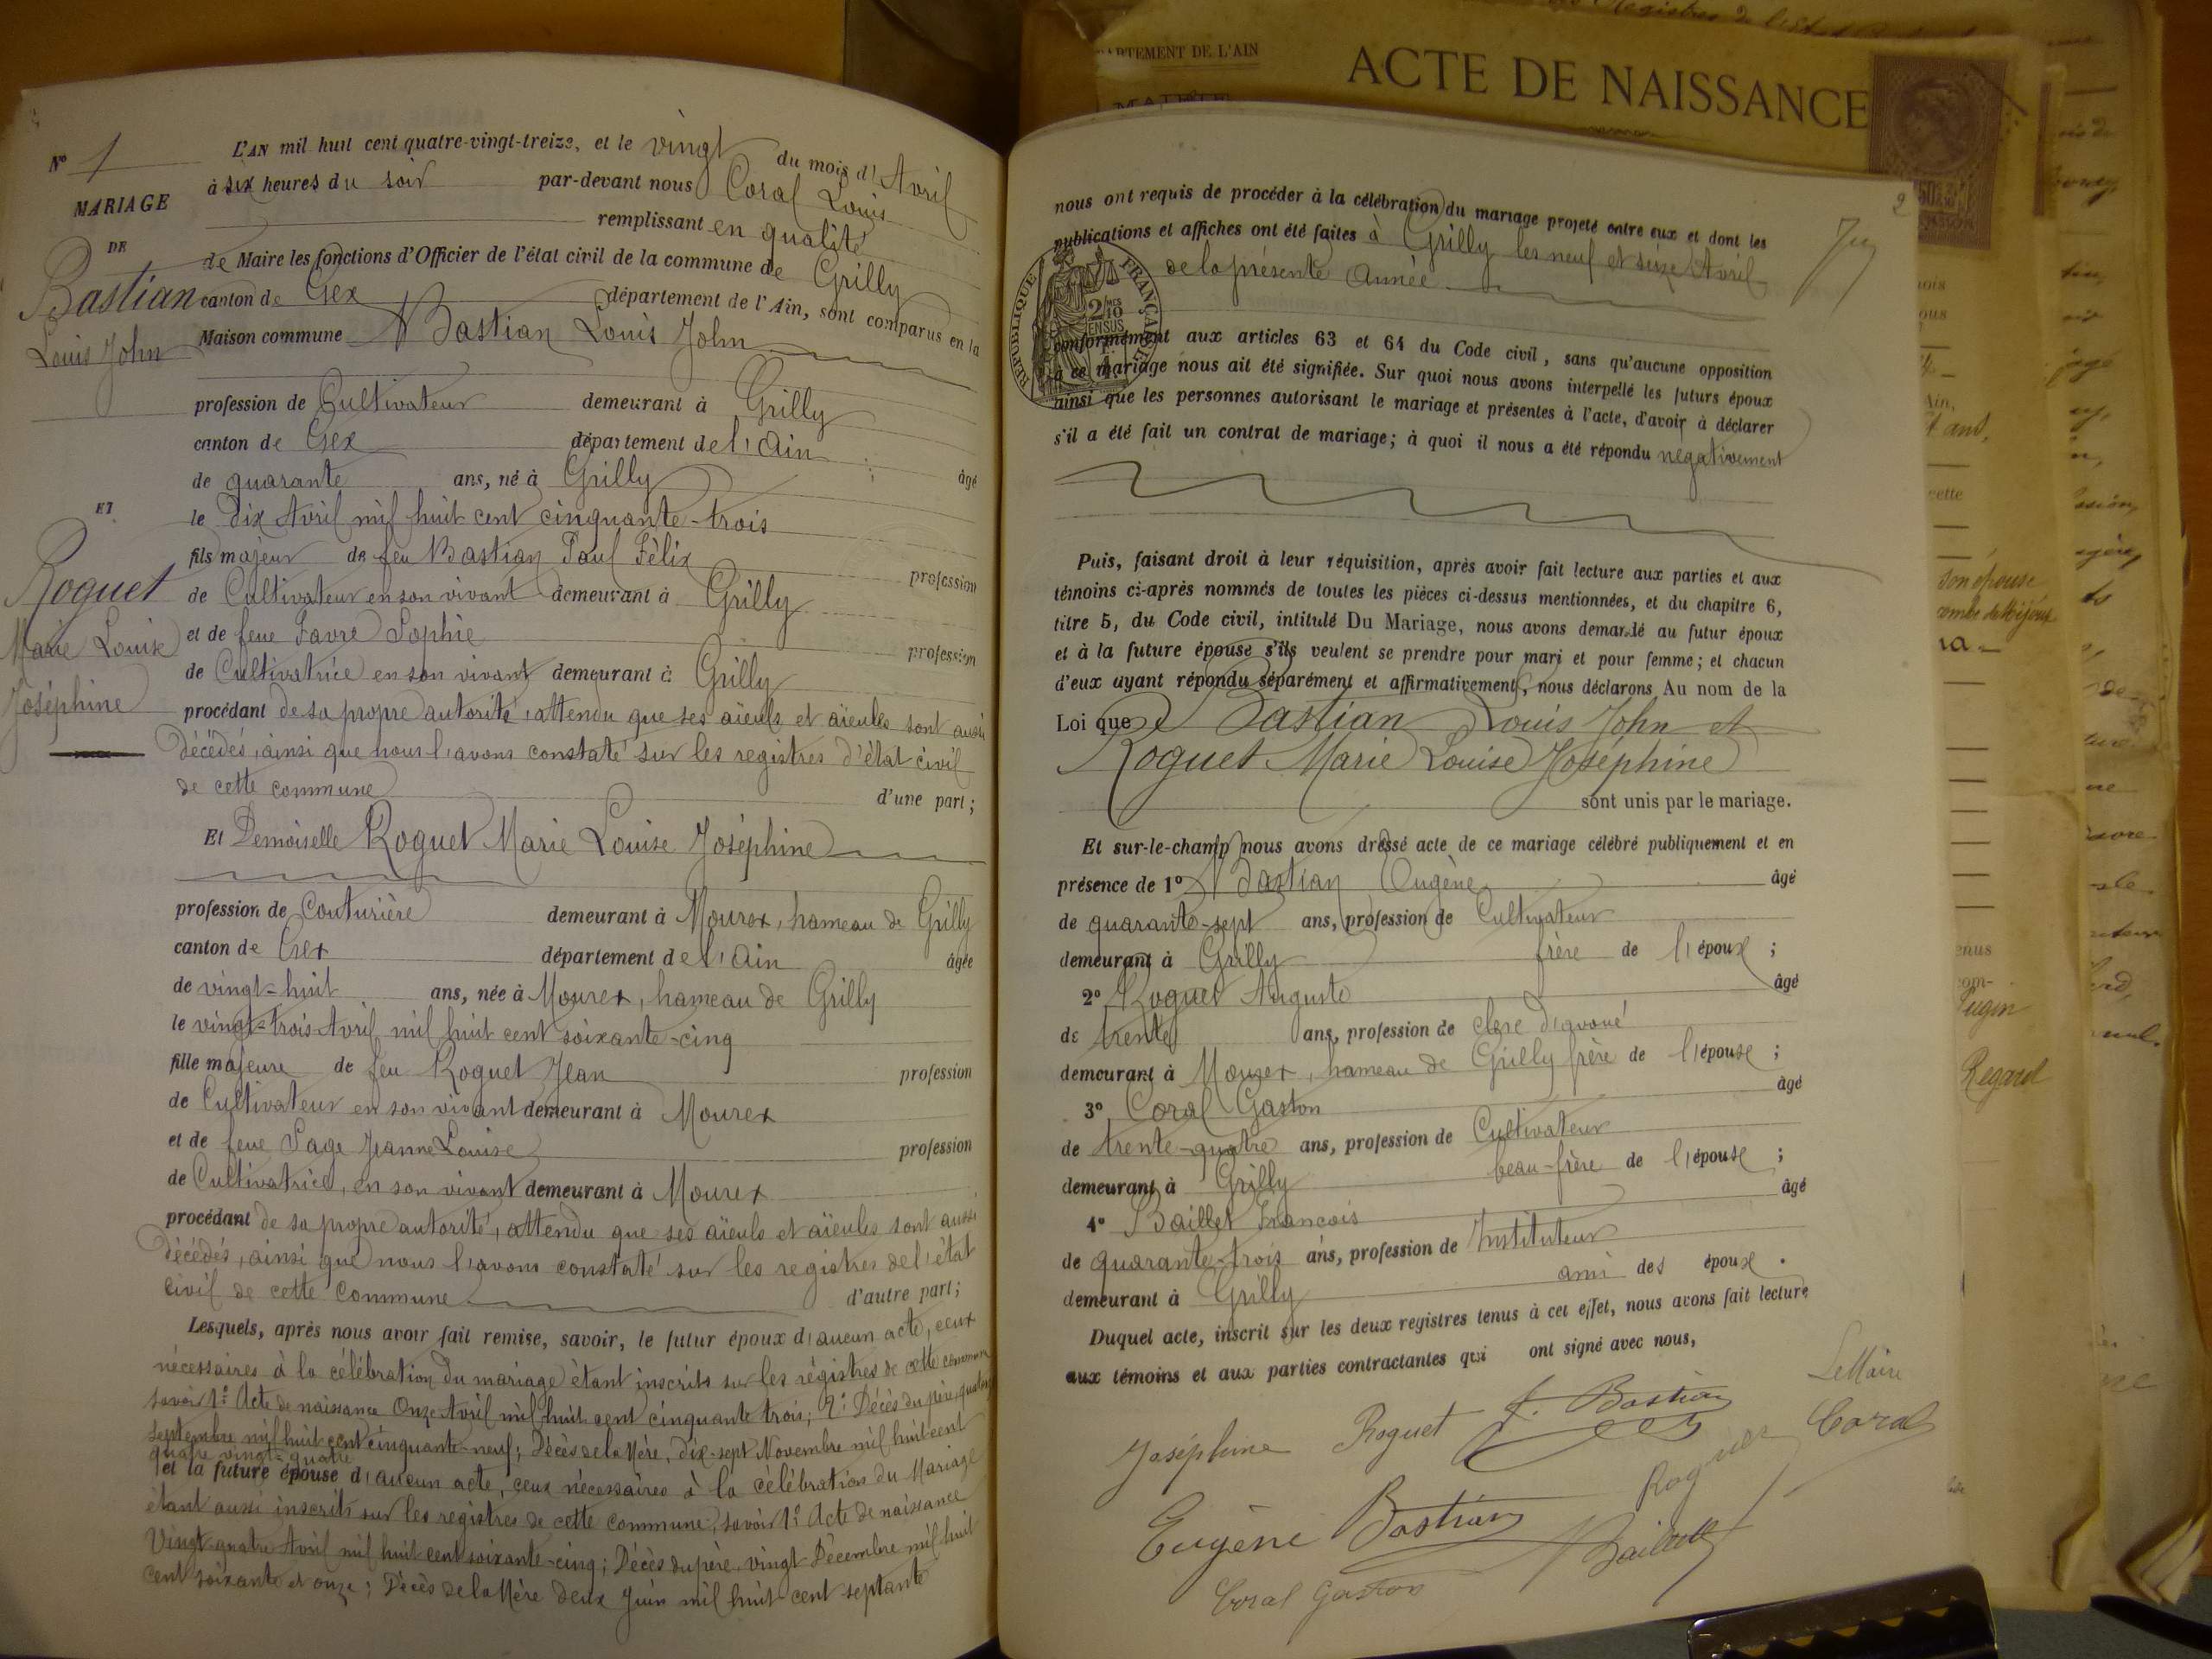 N° 1
MARIAGE
DE
Bastian
Louis John
ET
Roquet
Marie Louise
Joséphine
L'AN mil huit cent quatre-vingt-treize, et le vingt du mois d'Avril
à six heures du soir par-devant nous Coral Louis
remplissant en qualité
de Maire les fonctions d'Officier de l'état civil de la commune de Grilly
canton de Gex département de l'Ain, sont comparus en la
Maison commune Bastian Louis John
profession de Cultivateur demeurant à Grilly
canton de Gex département de l'Ain
de quarante ans, né à Grilly âgé
le dix Avril mil huit cent cinquante-trois
fils majeur de feu Bastian Paul Félix profession
de Cultivateur en son vivant demeurant à Grilly
et de feue Favre Sophie profession
de Cultivatrice en son vivant demeurant à Grilly
procédant de sa propre autorité, attendu que ses aïeuls et aïeules sont aussi
décédés, ainsi que nous l'avons constaté sur les registres d'état civil
de cette commune d'une part;
Et Demoiselle Roquet Marie Louise Joséphine
profession de Couturière demeurant à Mourex, hameau de Grilly
canton de Gex département de l'Ain âgée
de vingt-huit ans, née à Mourex, hameau de Grilly
le vingt-trois Avril mil huit cent soixante-cinq
fille majeure de feu Roquet Jean profession
de Cultivateur en son vivant demeurant à Mourex
et de feue Page Jeanne Louise profession
de Cultivatrice, en son vivant demeurant à Mourex
procédant de sa propre autorité, attendu que ses aïeuls et aïeules sont aussi
décédés, ainsi que nous l'avons constaté sur les registres de l'état
civil de cette commune d'autre part;
Lesquels, après nous avoir fait remise, savoir, le futur époux d'aucun acte, ceux
nécessaires à la célébration du mariage étant inscrits sur les régistres de cette commune
savoir 1° Acte de naissance Onze Avril mil huit cent cinquante trois; 2° Décès du père, quatorze
septembre mil huit cent cinquante-neuf; Décès de la Mère, dix-sept Novembre mil huit cent
quatre vingt-quatre
et la future épouse d'aucun acte, ceux nécessaires à la célébration du Mariage
étant aussi inscrits sur les registres de cette commune, savoir 1° Acte de naissance
Vingt-quatre Avril mil huit cent soixante-cinq; Décès du père, vingt Décembre mil huit
cent soixante et onze; Décès de la Mère deux Juin mil huit cent septante
DEPARTEMENT DE L'AIN
MAIRIE
ACTE DE NAISSANCE
2
nous ont requis de procéder à la célébration du mariage projeté entre eux et dont les
publications et affiches ont été faites à Grilly les neuf et seize Avril
de la présente Année
RÉPUBLIQUE FRANÇAISE
2/10
EN SUS
conformément aux articles 63 et 64 du Code civil, sans qu'aucune opposition
à ce mariage nous ait été signifiée. Sur quoi nous avons interpellé les futurs époux
ainsi que les personnes autorisant le mariage et présentes à l'acte, d'avoir à déclarer
s'il a été fait un contrat de mariage; à quoi il nous a été répondu négativement
Puis, faisant droit à leur réquisition, après avoir fait lecture aux parties et aux
témoins ci-après nommés de toutes les pièces ci-dessus mentionnées, et du chapitre 6,
titre 5, du Code civil, intitulé Du Mariage, nous avons demandé au futur époux
et à la future épouse s'ils veulent se prendre pour mari et pour femme; et chacun
d'eux ayant répondu séparément et affirmativement, nous déclarons Au nom de la
Loi que Bastian Louis John et
Roquet Marie Louise Joséphine
sont unis par le mariage.
Et sur-le-champ nous avons dressé acte de ce mariage célébré publiquement et en
présence de 1° Bastian Eugène âgé
de quarante-sept ans, profession de Cultivateur
demeurant à Grilly frère de l'époux;
2° Roquet Auguste âgé
de trente ans, profession de clerc d'avoué
demeurant à Mourex, hameau de Grilly frère de l'épouse;
3° Coral Gaston âgé
de trente-quatre ans, profession de Cultivateur
demeurant à Grilly beau-frère de l'épouse;
4° Baillet François âgé
de quarante-trois ans, profession de Instituteur
demeurant à Grilly ami des époux.
Duquel acte, inscrit sur les deux registres tenus à cet effet, nous avons fait lecture
aux témoins et aux parties contractantes qui ont signé avec nous,
Le Maire
Joséphine Roquet J. Bastian Coral
Eugène Bastian Roquet
Coral Gaston Baillet
son épouse
Regard